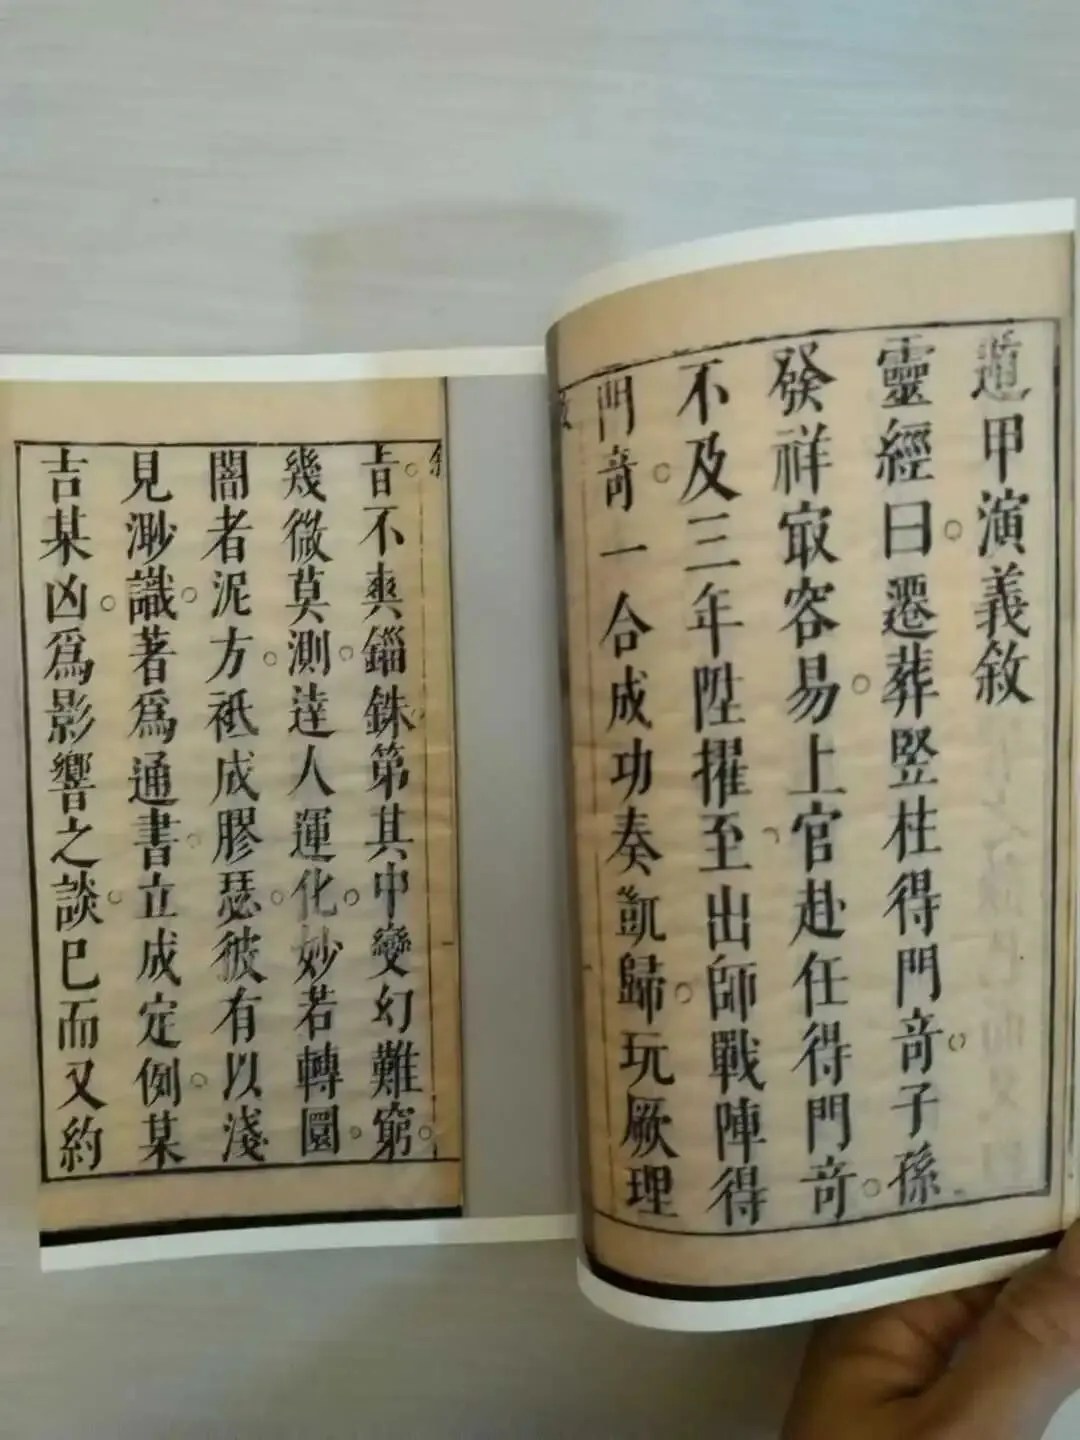 遁甲演義敘
靈經曰。遷葬竪柱得門竒。子孫
發祥㝡容易。上官赴任得門竒。
不及三年陞擢至。出師戰陣得
門竒。一合成功奏凱歸。玩厥理
旨。不爽錙銖。第其中變幻難窮。
幾微莫測。達人運化。妙若轉圜。
闇者泥方。祗成膠瑟。彼有以淺
見渺識。著爲通書。立成定例。某
吉某凶。爲影響之談。巳而又約